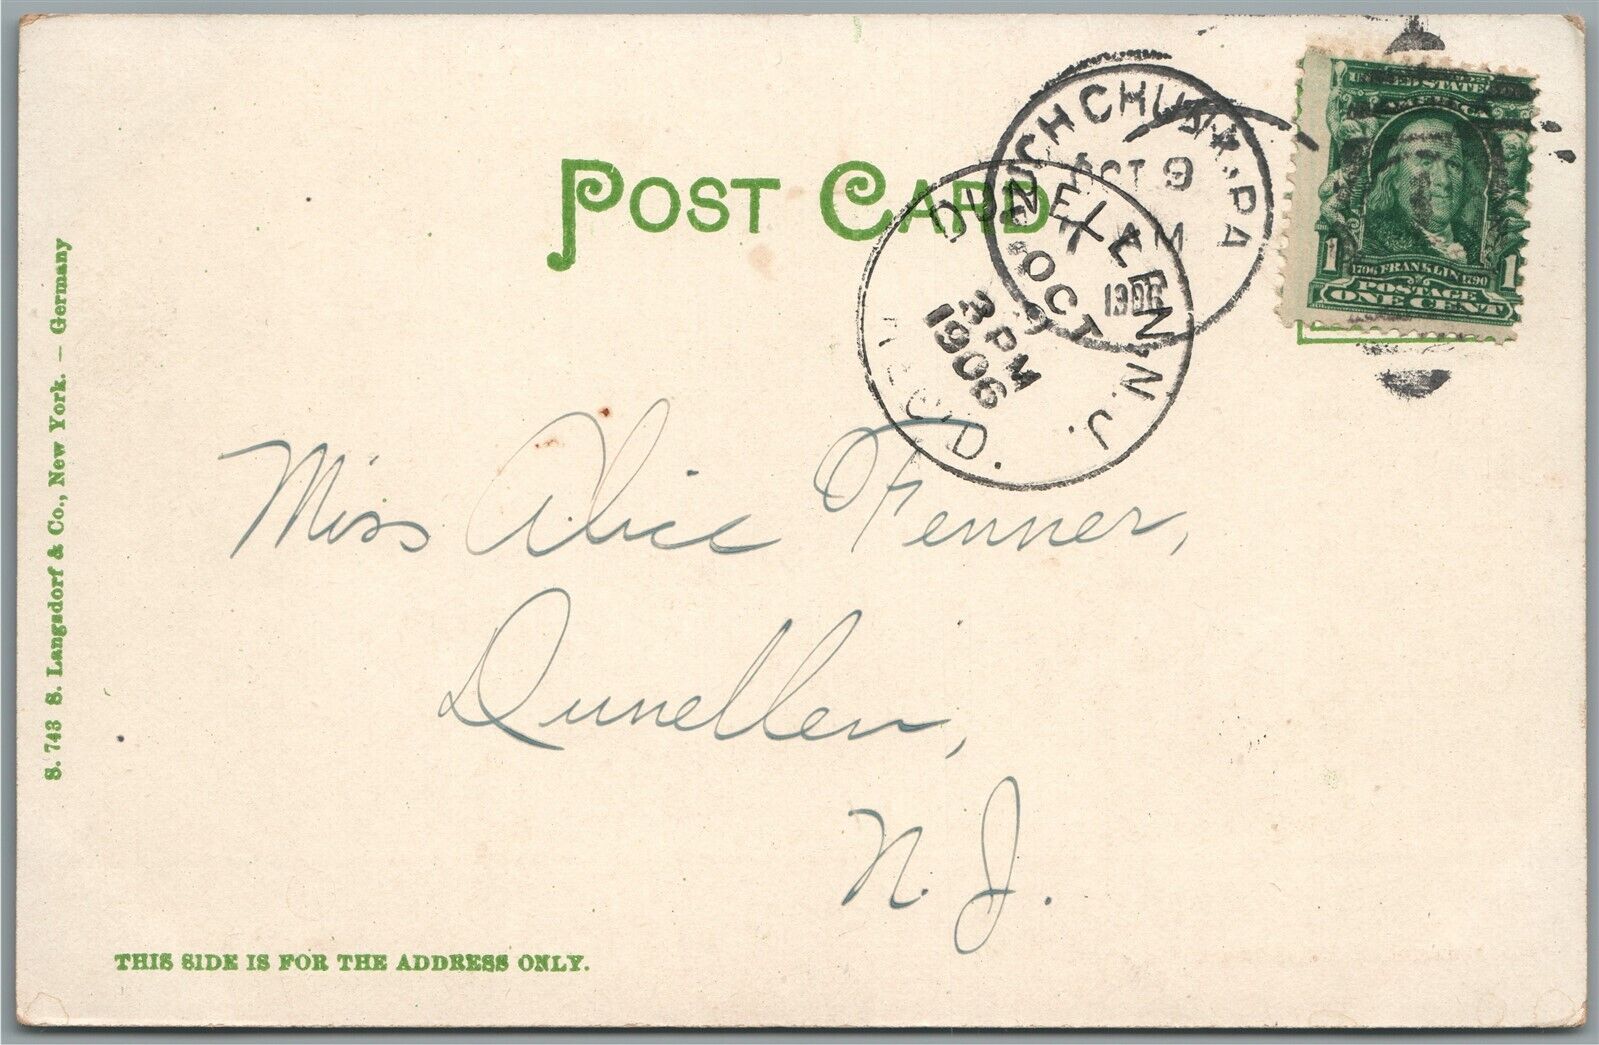 POST CARD
MAUCH CHUNK, PA
OCT 9
AM
1906
DUNELLEN, N.J.
OCT 9
3 PM
1906
REC'D.
UNITED STATES
AMERICA
1796 FRANKLIN 1790
POSTAGE
1 ONE CENT 1
Miss Alice Fenner,
Dunellen,
N. J.
S. 743 S. Langsdorf & Co., New York. — Germany
THIS SIDE IS FOR THE ADDRESS ONLY.